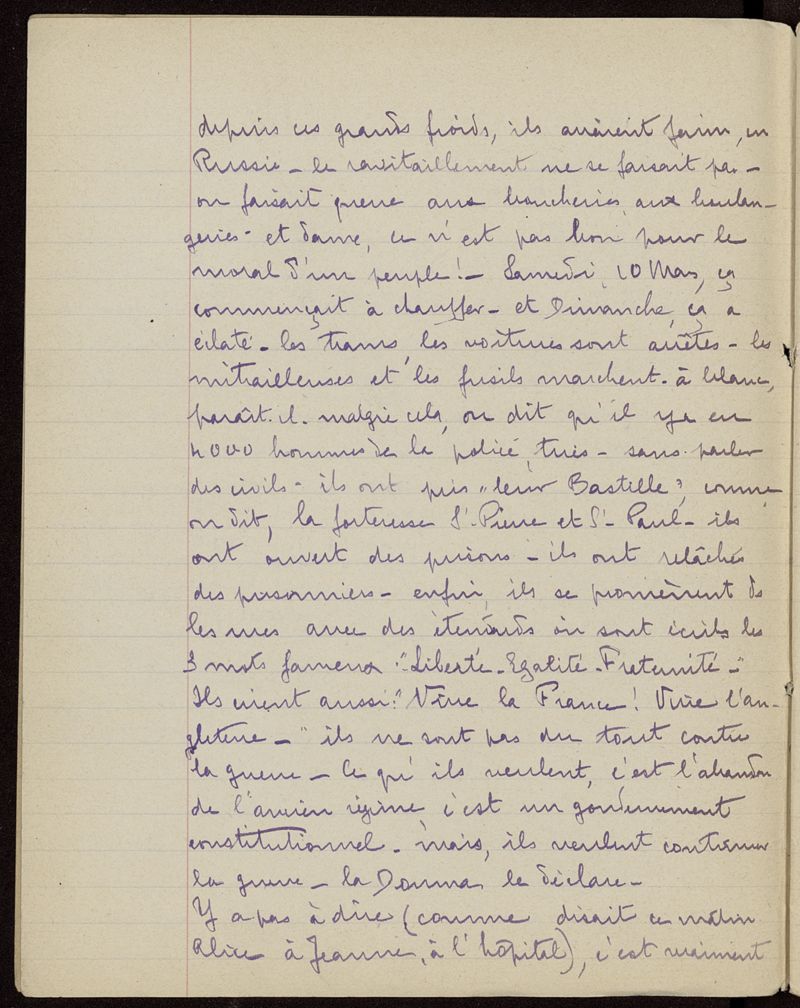 depuis ces grands froids, ils avaient faim, en
Russie - le ravitaillement ne se faisait pas -
on faisait queue aux boucheries, aux boulan-
geries - et dame, ce n'est pas bon pour le
moral d'un peuple! - Samedi, 10 Mars, ça
commençait à chauffer - et Dimanche, ça a
éclaté - les trams, les voitures sont arrêtés - les
mitrailleuses et les fusils marchent - à blanc,
paraît-il - malgré cela, on dit qu'il y a eu
4000 hommes de la police, tués - sans parler
des civils - ils ont pris "leur Bastille", comme
on dit, la forteresse St-Pierre et St-Paul - ils
ont ouvert des prisons - ils ont relâché
des prisonniers - enfin, ils se promènent ds
les rues avec des étendards où sont écrits les
3 mots fameux: "Liberté - Egalité - Fraternité -"
Ils crient aussi: "Vive la France! Vive l'an-
gleterre -" ils ne sont pas du tout contre
la guerre - Ce qu'ils veulent, c'est l'abandon
de l'ancien régime, c'est un gouvernement
constitutionnel - mais, ils veulent continuer
la guerre - la Douma le déclare -
Y a pas à dire (comme disait ce matin
Alice à Jeanne, à l'hôpital), c'est vraiment